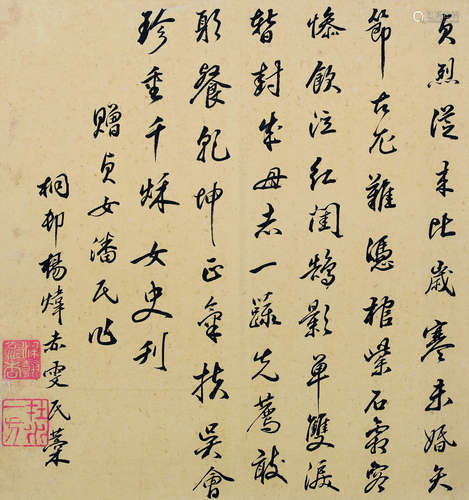 貞烈從來比歲寒未婚矢
節古尤難憑棺石霜容
慘飲泣紅閨鵠影單雙淚
暫封成母志一蔬先薦敢
餐乾坤正氣扶吳會
珍重千秋女史刊
贈貞女潘氏作
桐邨楊煒赤雯氏藁